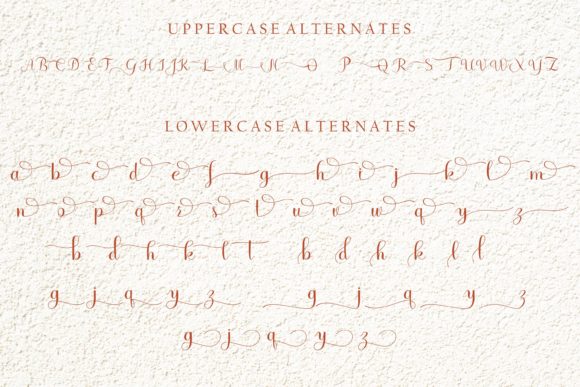 UPPERCASE ALTERNATES
A B C D E F G H I J K L M N O P Q R S T U V W X Y Z
LOWERCASE ALTERNATES
a b c d e f g h i j k l m
n o p q r s t u v w q y z
b d h k l t b d h k l l
g j q y z g j q y z
g j q y z